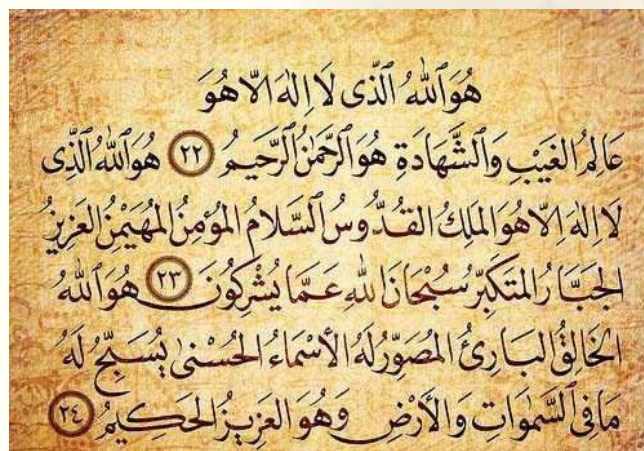 هُوَ ٱللّٰهُ ٱلَّذِى لَا اِلٰهَ اِلَّا هُوَ
عَالِمُ الغَيْبِ وَٱلشَّهَادَةِ هُوَ ٱلرَّحْمٰنُ ٱلرَّحِيمُ ٢٢ هُوَ ٱللّٰهُ ٱلَّذِى
لَا اِلٰهَ اِلَّا هُوَ المَلِكُ القُدُّوسُ ٱلسَّلَامُ المُؤمِنُ المُهَيْمِنُ العَزِيزُ
الجَبَّارُ المُتَكَبِّرُ سُبْحَانَ ٱللّٰهِ عَمَّا يُشْرِكُونَ ٢٣ هُوَ ٱللّٰهُ
الخَالِقُ البَارِئُ المُصَوِّرُ لَهُ الأَسْمَاءُ الحُسْنىٰ يُسَبِّحُ لَهُ
مَا فِى ٱلسَّمٰوَاتِ وَالأَرْضِ وَهُوَ العَزِيزُ الحَكِيمُ ٢٤